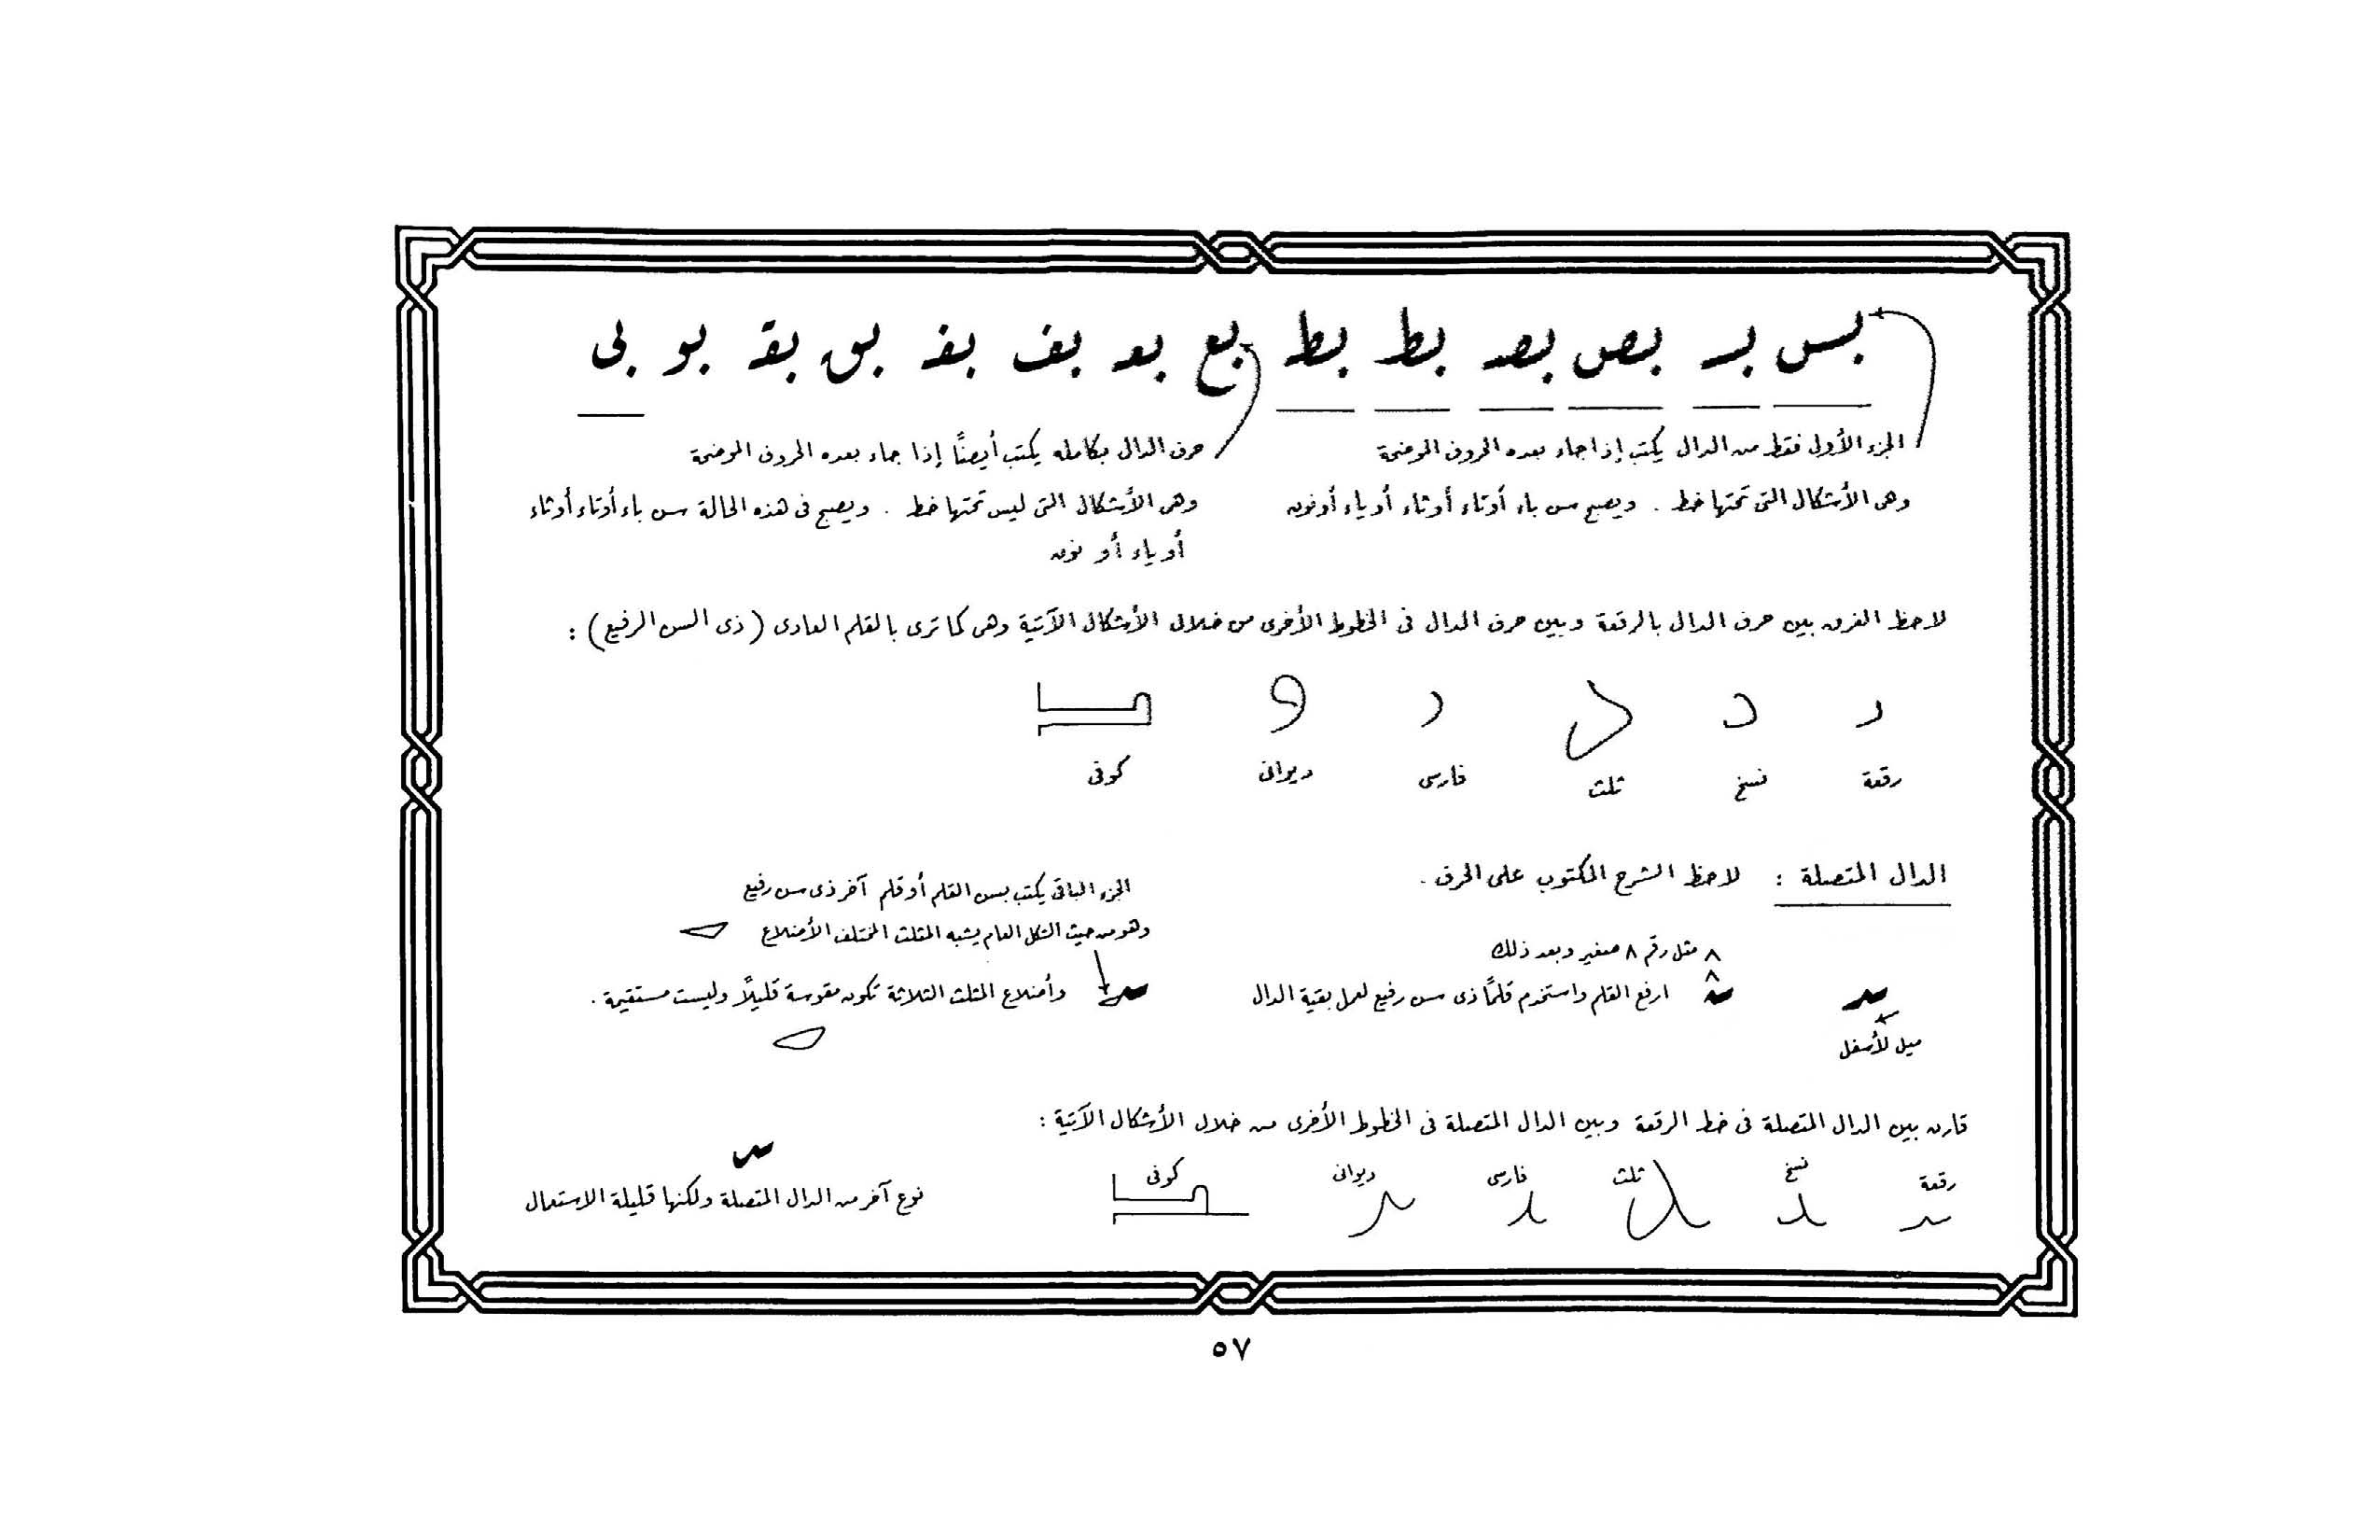 بس بـ بص بصـ بط بط بع بعـ بف بفـ بق بقـ بو بى
الجزء الأول فقط من الدال يكتب إذا جاء بعده الحروف الموضحة
وهى الأشكال التى تحتها خط . ويصبح سن باء أوتاء أوثاء أوياء أونون
حرف الدال بكامله يكتب أيضًا إذا جاء بعده الحروف الموضحة
وهى الأشكال التى ليس تحتها خط . ويصبح فى هذه الحالة سن باء أوتاء أوثاء
أوياء أو نون
لاحظ الفرق بين حرف الدال بالرقعة وبين حرف الدال فى الخطوط الأخرى من خلال الأشكال الآتية وهى كما ترى بالقلم العادى (ذى السن الرفيع) :
د د د د د د
رقعة نسخ ثلث فارسى ديوانى كوفى
الدال المتصلة : لاحظ الشرح المكتوب على الحرف .
ميل لأسفل
٨ مثل رقم ٨ صغير وبعد ذلك
٨
ارفع القلم واستخدم قلمًا ذى سن رفيع لعمل بقية الدال
الجزء الباقى يكتب بسن القلم أوقلم آخر ذى سن رفيع
وهو من حيث الشكل العام يشبه المثلث المختلف الأضلاع
وأضلاع المثلث الثلاثة تكون مقوسة قليلاً وليست مستقيمة .
قارن بين الدال المتصلة فى خط الرقعة وبين الدال المتصلة فى الخطوط الأخرى من خلال الأشكال الآتية :
رقعة نسخ ثلث فارسى ديوانى كوفى
ـد ـد ـد ـد ـد ـد
ـد
نوع آخر من الدال المتصلة ولكنها قليلة الاستعمال
٥٧